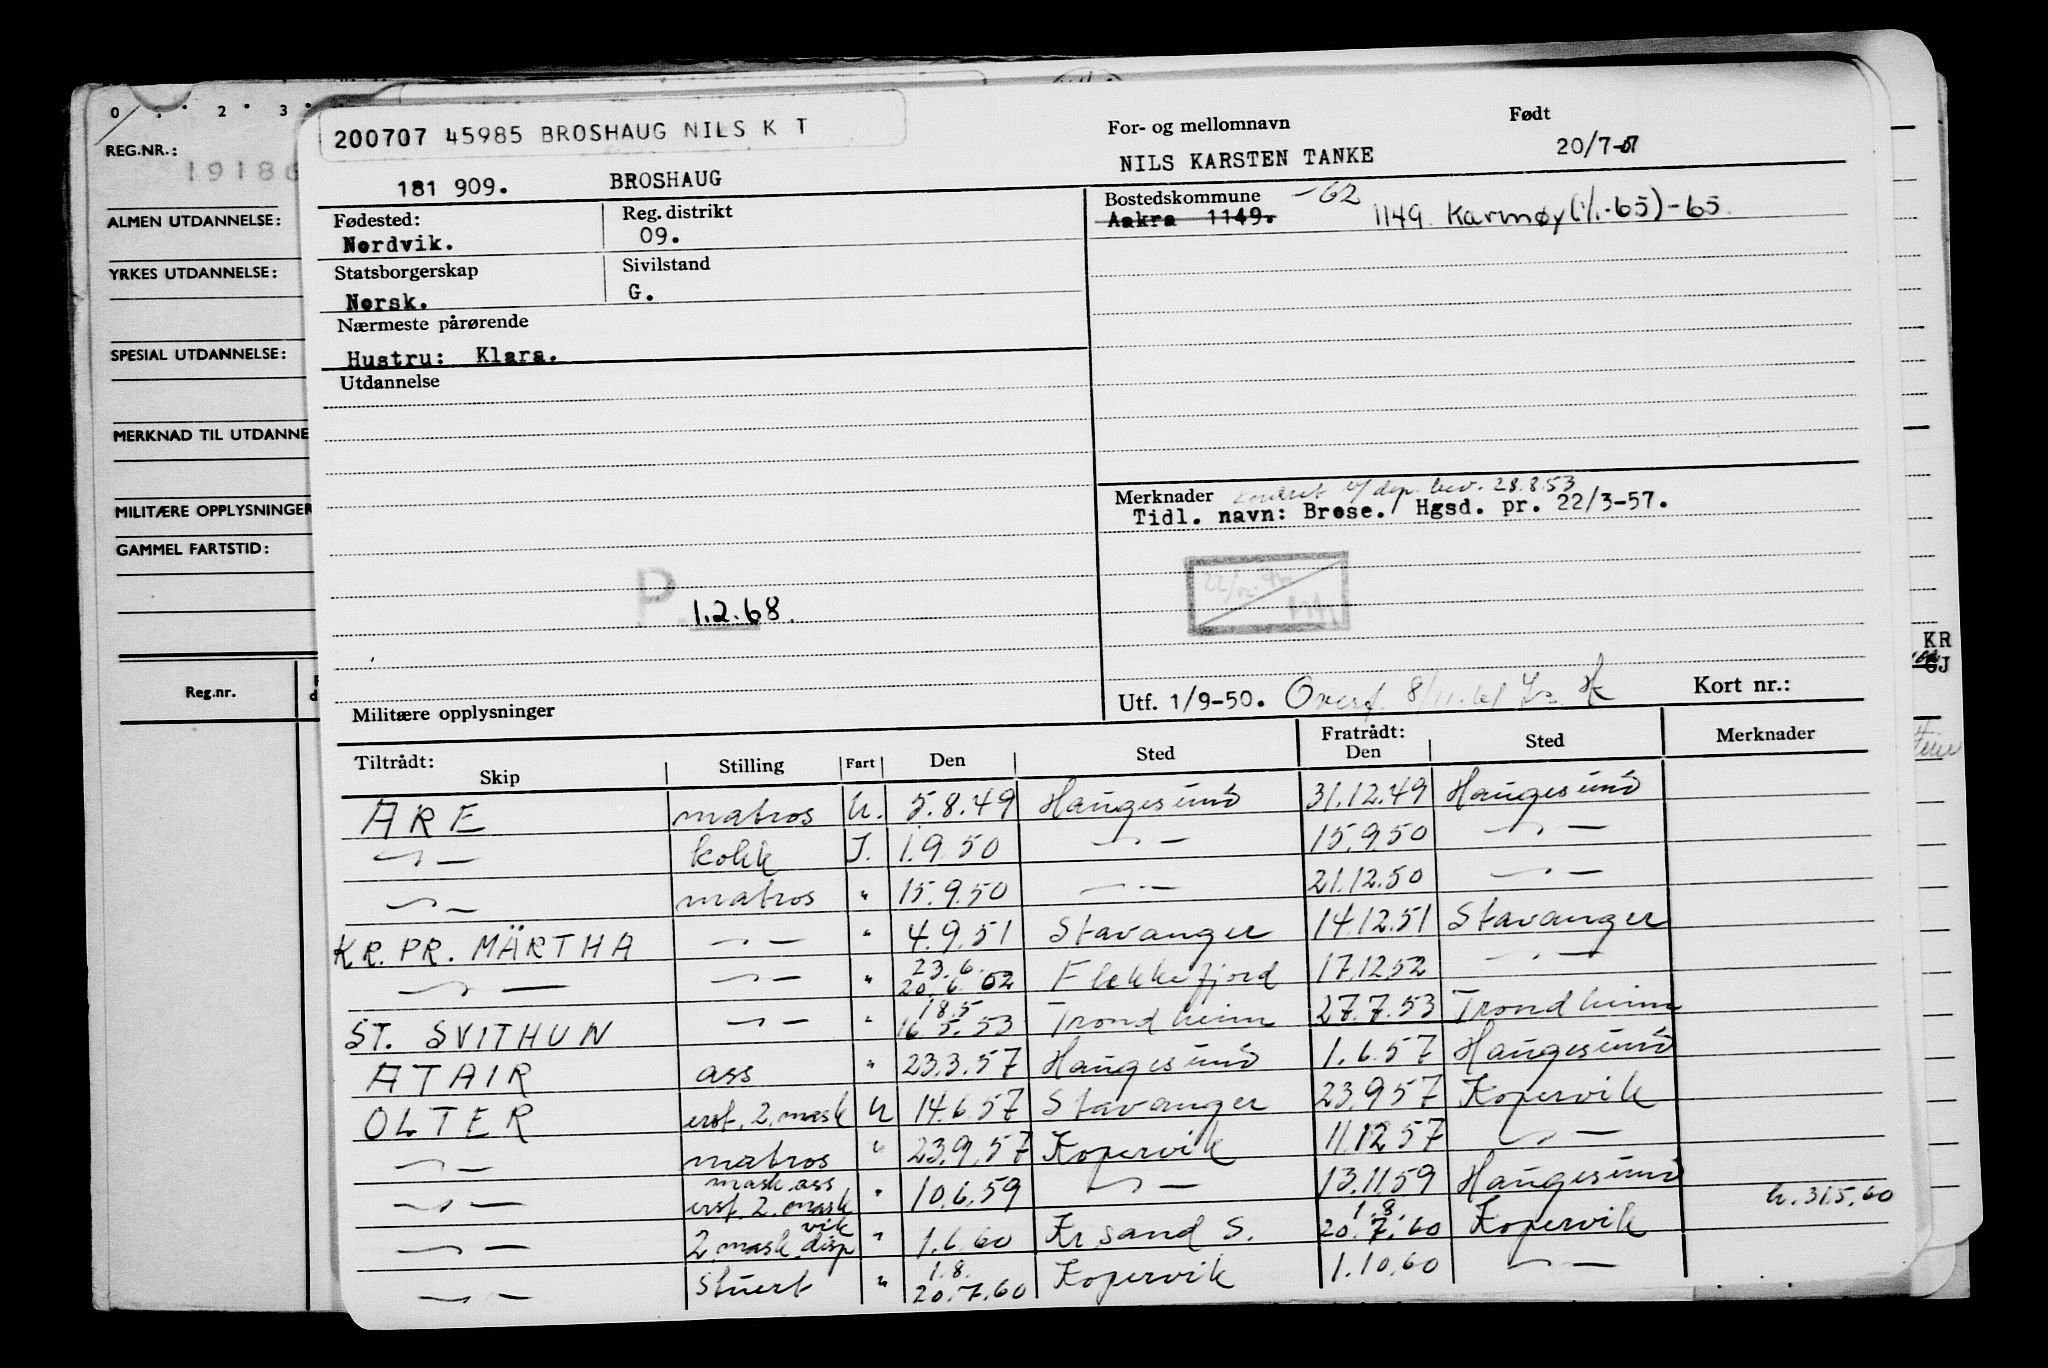 0 . 2 3
REG.NR.:
19186
ALMEN UTDANNELSE:
YRKES UTDANNELSE:
SPESIAL UTDANNELSE:
MERKNAD TIL UTDANNE
MILITÆRE OPPLYSNINGER
GAMMEL FARTSTID:
Reg.nr.
200707 45985 BROSHAUG NILS K T
For- og mellomnavn
Født
181 909. BROSHAUG NILS KARSTEN TANKE 20/7-07
Fødested:
Nordvik.
Reg. distrikt
09.
Bostedskommune -62
Aakra 1149. 1149 Karmøy (1/1-65)-65
Statsborgerskap
Norsk.
Sivilstand
G.
Nærmeste pårørende
Hustru: Klara.
Utdannelse
P. 1.2.68.
Militære opplysninger
Merknader Endret v/ dep. bev. 28.8.53
Tidl. navn: Brose. Hgsd. pr. 22/3-57.
Utf. 1/9-50. Overf. 8/11.61
Kort nr.:
KR
GJ
Tiltrådt: Skip Stilling Fart Den Sted Fratrådt: Den Sted Merknader
ARE matros U. 5.8.49 Haugesund 31.12.49 Haugesund
-"- kokk I. 1.9.50 -"- 15.9.50 -"-
-"- matros " 15.9.50 -"- 21.12.50 -"-
KR. PR. MÄRTHA -"- " 4.9.51 Stavanger 14.12.51 Stavanger
-"- -"- " 23.6. 20.6.52 Flekkefjord 17.12.52 -"-
ST. SVITHUN -"- " 18.5 16.5.53 Trondheim 27.7.53 Trondheim
ATAIR ass " 23.3.57 Haugesund 1.6.57 Haugesund
OLTER erst. 2. mask U 14.6.57 Stavanger 23.9.57 Kopervik
-"- matros " 23.9.57 Kopervik 11.12.57 -"-
-"- mask.ass erst. 2. mask " 10.6.59 -"- 13.11.59 Haugesund
-"- 2 mask. disp vik " 1.6.60 Kr.sand S. 1.8. 20.7.60 Kopervik h. 31.5.60
-"- Stuert " 1.8. 20.7.60 Kopervik 1.10.60 -"-